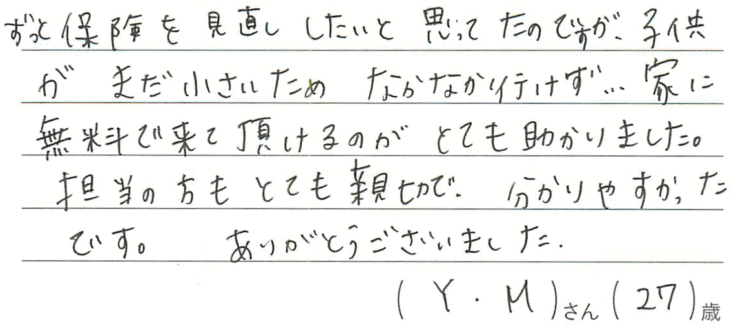 ずっと保険を見直ししたいと思ってたのですが、子供
がまだ小さいため なかなか行けず… 家に
無料で来て頂けるのがとても助かりました。
担当の方もとても親切で、分かりやすかった
です。 ありがとうございました.
(Y・M)さん(27)歳